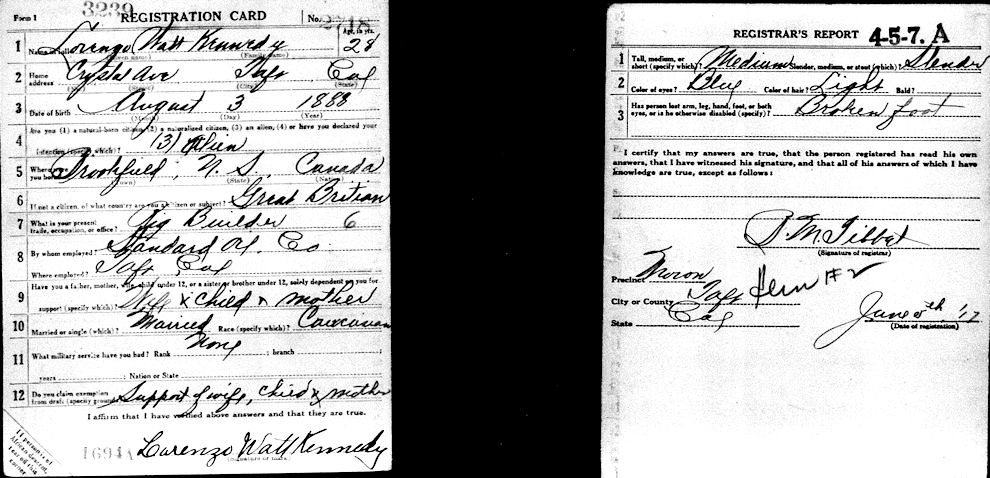 Form 1 3239 REGISTRATION CARD No. 2718
1 Lorenzo Watt Kennedy Age, in yrs. 28
Name in full (Given name) (Family name)
2 Home address Crystal Ave Taft Cal
(No.) (State)
3 Date of birth August 3 1888
(Month) (Day) (Year)
4 Are you (1) a natural-born citizen, (2) a naturalized citizen, (3) an alien, (4) or have you declared your
intention (specify which)? (3) Alien
5 Where were you born? Brookfield, N. S. Canada
(Town) (State) (Nation)
6 If not a citizen, of what country are you a citizen or subject? Great Britian
7 What is your present trade, occupation, or office? Rig Builder 6
8 By whom employed? Standard Oil Co
Where employed? Taft Cal
9 Have you a father, mother, wife, child under 12, or a sister or brother under 12, solely dependent on you for
support (specify which)? Wife & child & mother
10 Married or single (which)? Married Race (specify which)? Caucasian
11 What military service have you had? Rank None ; branch ;
years ; Nation or State
12 Do you claim exemption from draft (specify grounds)? Support of wife, child & mother
I affirm that I have verified above answers and that they are true.
1694A Lorenzo Watt Kennedy
If person is of African descent, tear off this corner
REGISTRAR'S REPORT 4-5-7. A
1 Tall, medium, or short (specify which)? Medium Slender, medium, or stout (which)? Slender
2 Color of eyes? Blue Color of hair? Light Bald?
3 Has person lost arm, leg, hand, foot, or both
eyes, or is he otherwise disabled (specify)? Broken foot
I certify that my answers are true, that the person registered has read his own
answers, that I have witnessed his signature, and that all of his answers of which I have
knowledge are true, except as follows:
P. M. Tibbet
(Signature of registrar)
Precinct Moron
City or County Taft Kern #2
State Cal June 5th '17
(Date of registration)